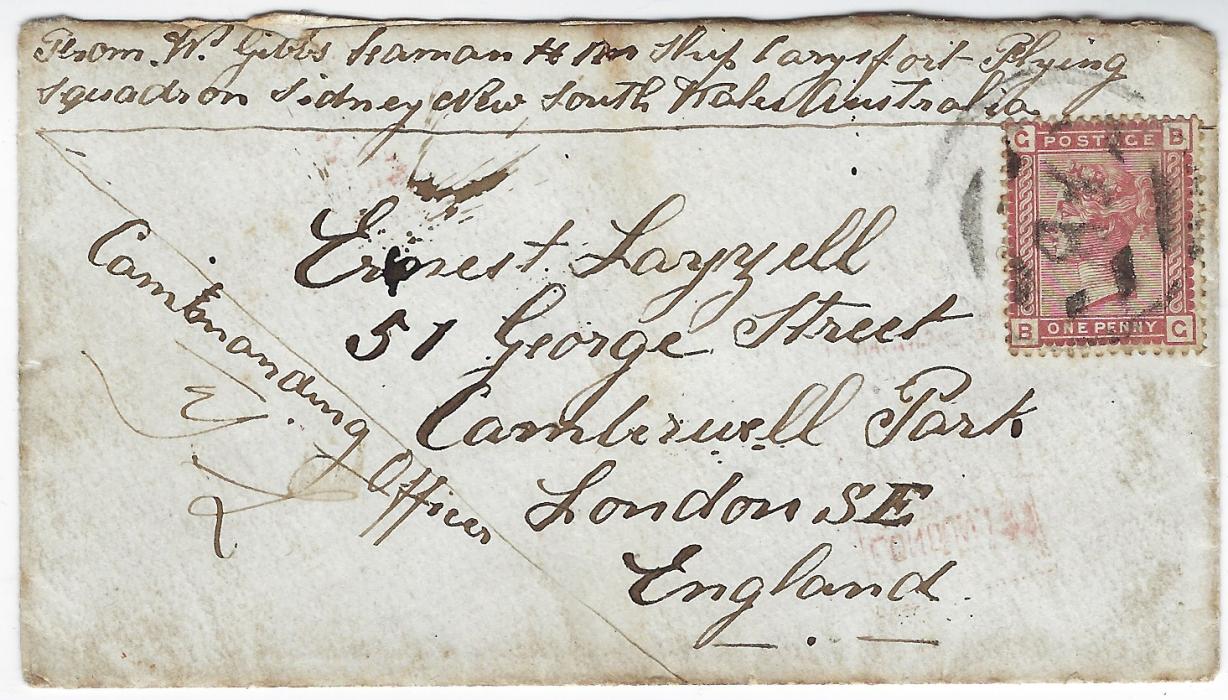 From W. Gibbs Seaman H M Ship Carysfort Flying
Squadron Sidney New South Wales Australia
G POSTAGE B
Ernest Lazzell
51 George Street
Camberwell Park
London SE
England
Commanding Officer
B ONE PENNY G